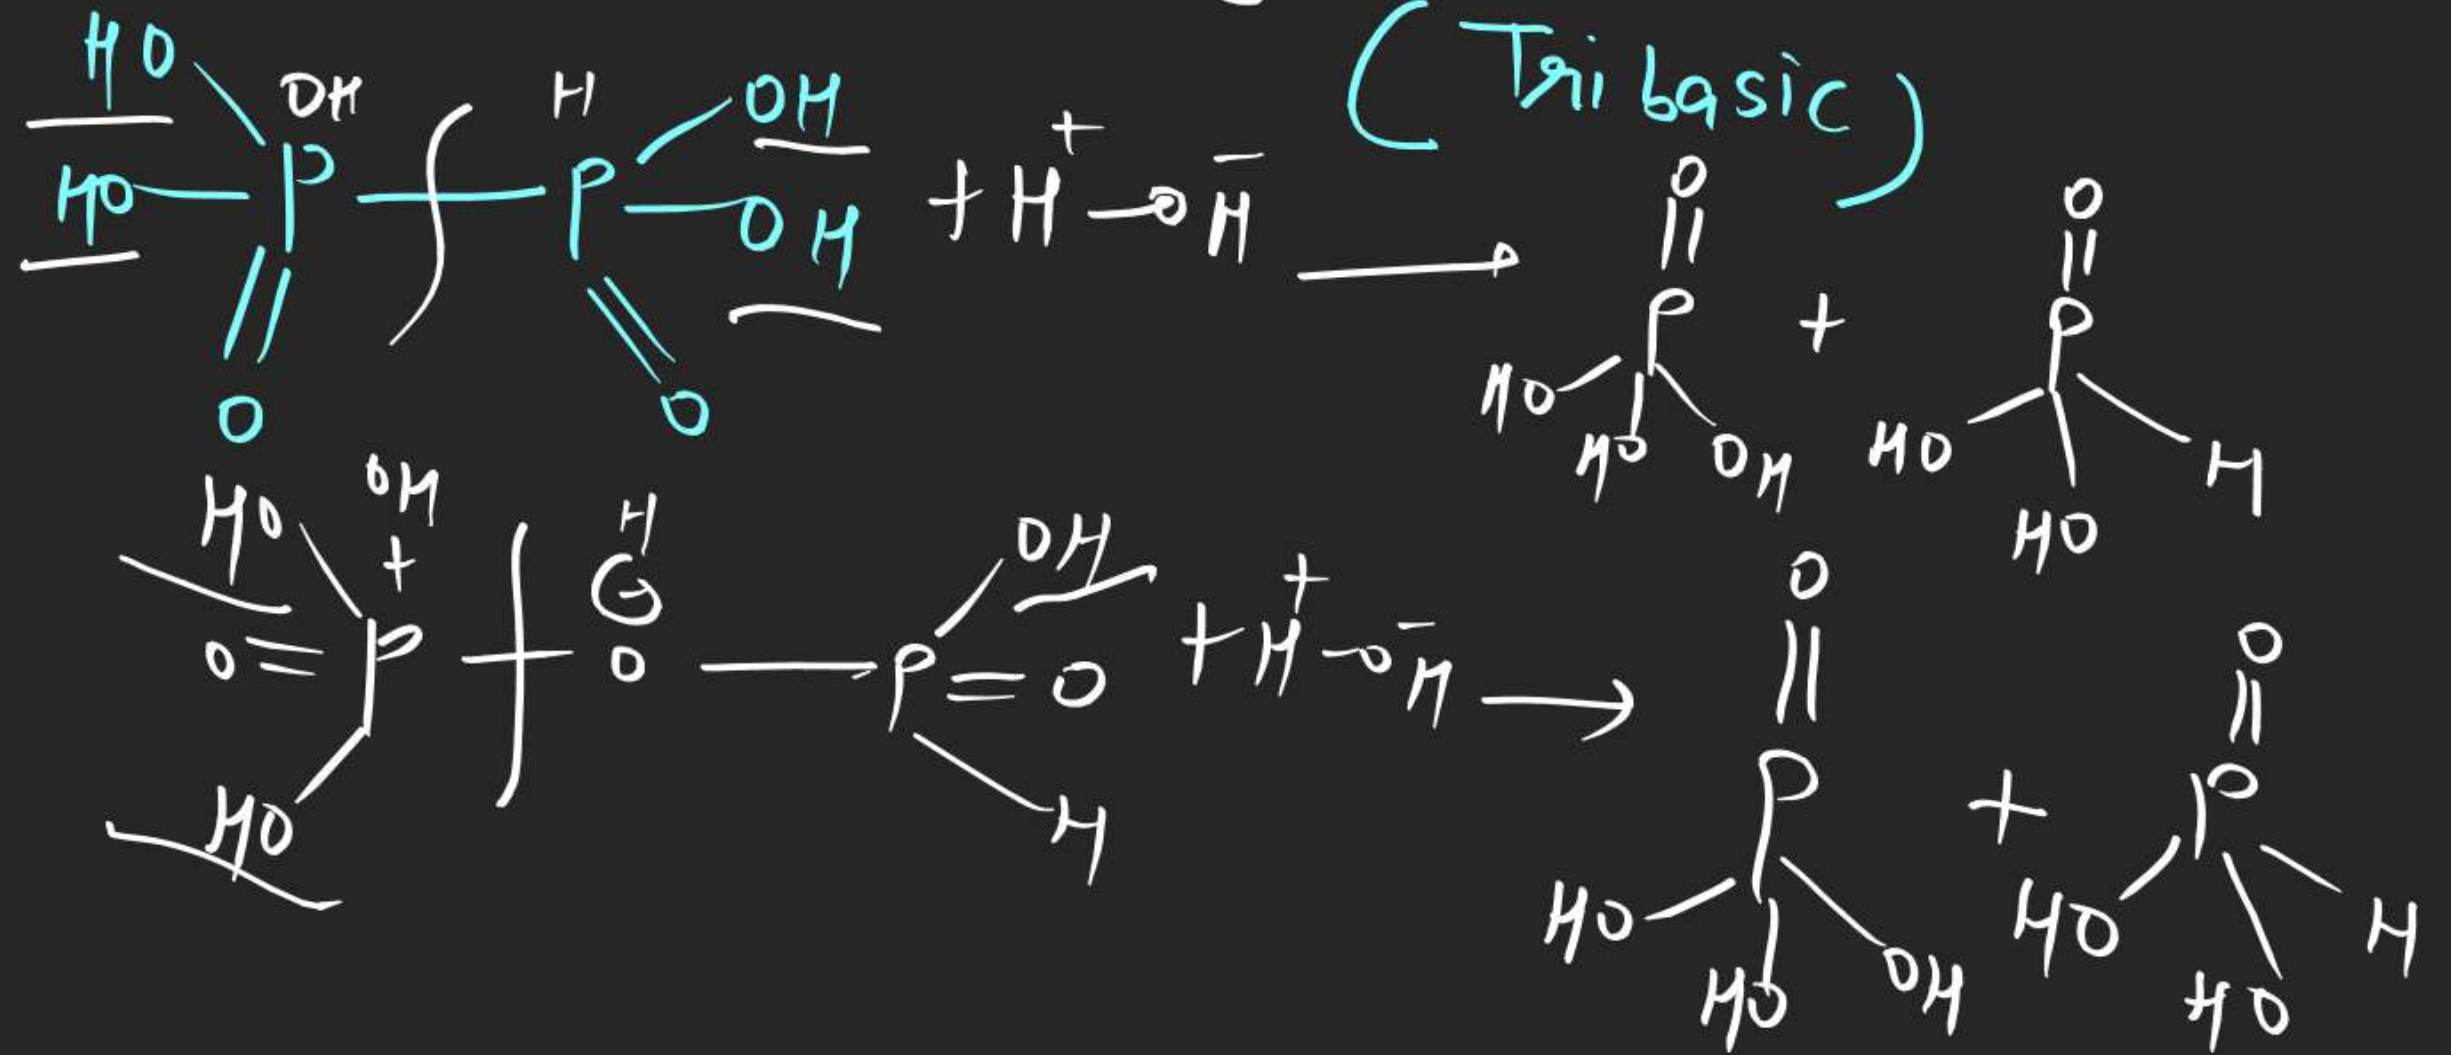 ( Tribasic )
HO OH H OH
HO P P OH + H+ - O H- → O O
O O P + P
HO HO OH HO HO H
HO OH + H ⊖ OH
O = P O P = O + H+ - O H- → O O
HO H P + P
HO HO OH HO HO H